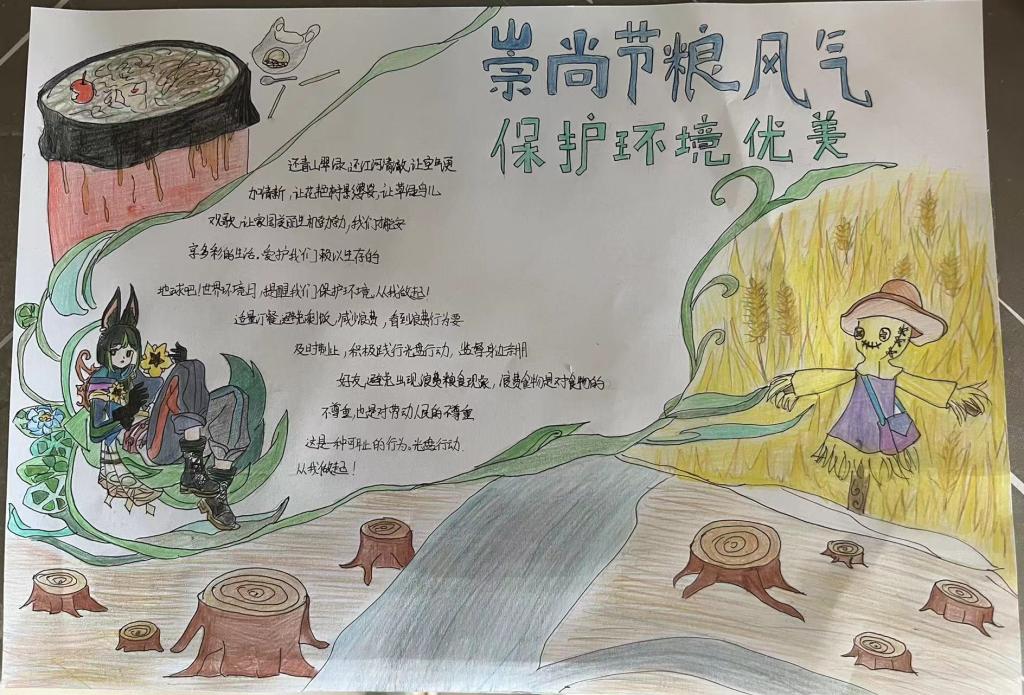 崇尚节粮风气
保护环境优美
还青山翠绿,还江河清澈,让空气更
加清新,让花艳树景婆娑,让草绿鸟儿
欢歌,让家园美丽生机勃勃,我们才能安
享多彩的生活.爱护我们赖以生存的
地球吧!世界环境日,提醒我们保护环境,从我做起!
适量订餐,避免剩饭,减少浪费,看到浪费行为要
及时制止,积极践行光盘行动,监督身边亲朋
好友,避免出现浪费粮食现象,浪费食物是对食物的
不尊重,也是对劳动人民的不尊重
这是一种可耻的行为。光盘行动.
从我做起!